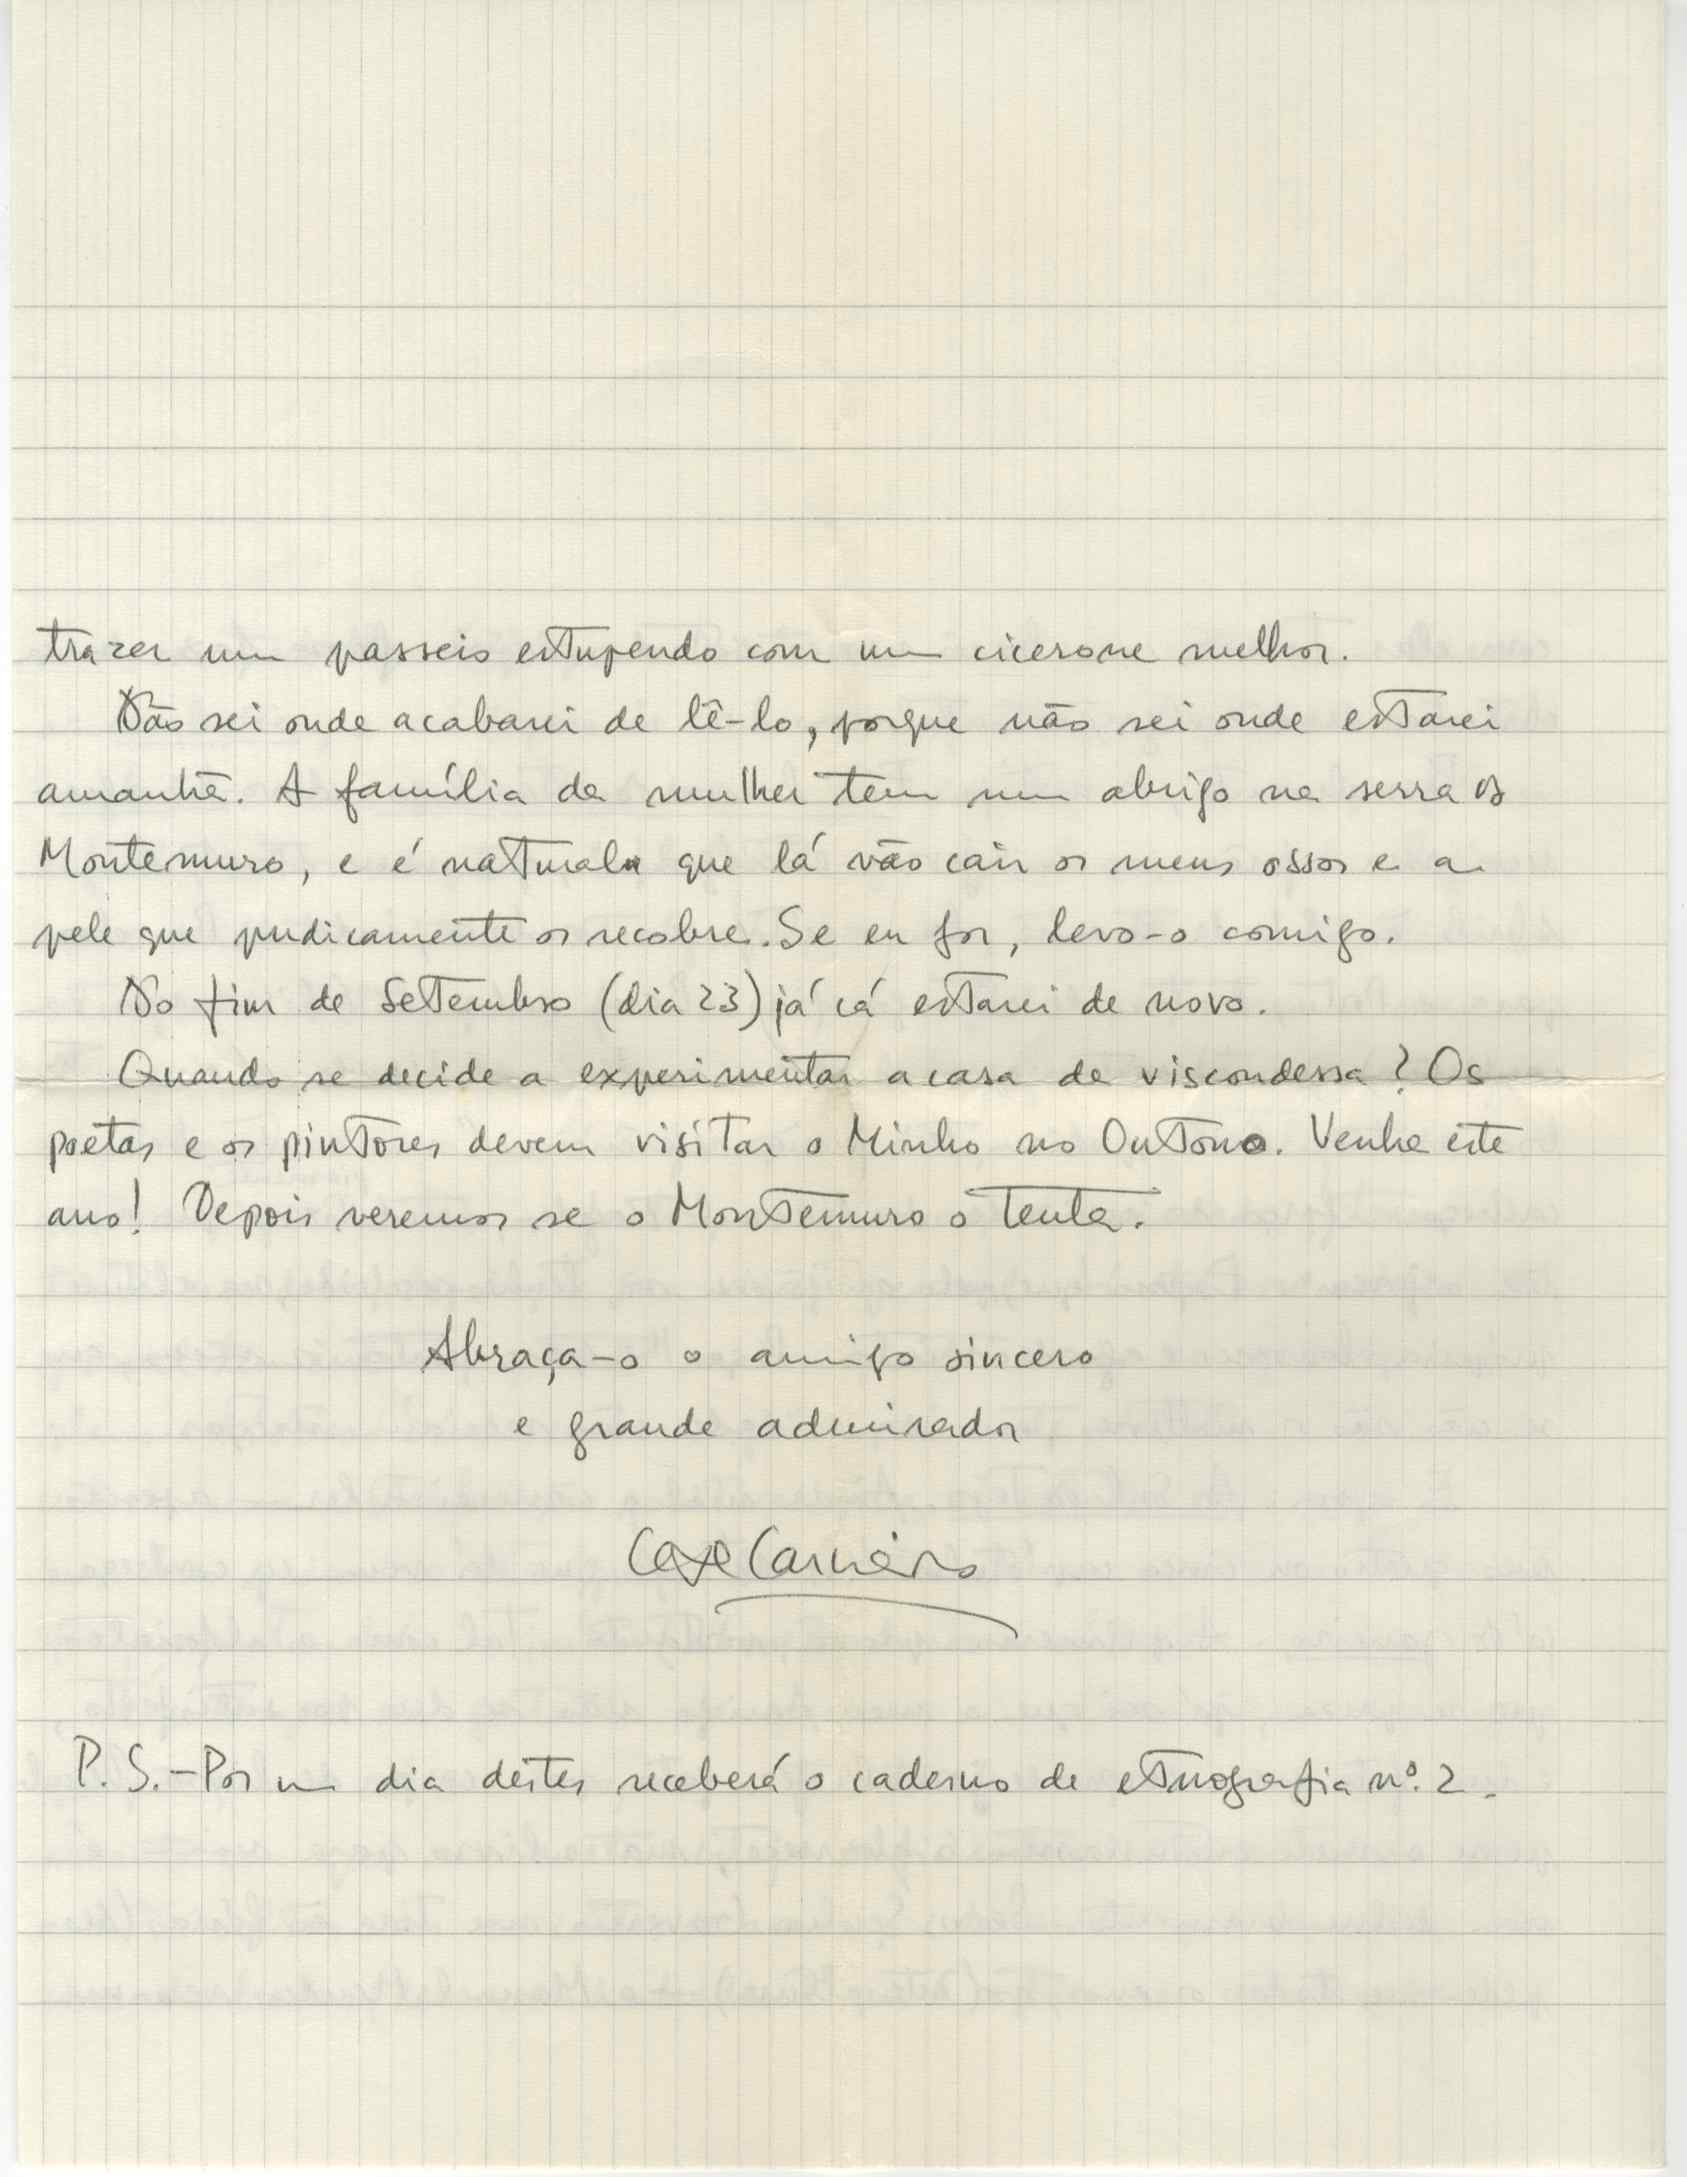 trazer um passeio estupendo com um cicerone melhor.
Não sei onde acabarei de lê-lo, porque não sei onde estarei
amanhã. A família da mulher tem um abrigo na serra de
Montemuro, e é natural que lá vão cair os meus ossos e a
pele que pudicamente os recobre. Se eu for, levo-o comigo.
No fim de Setembro (dia 23) já cá estarei de novo.
Quando se decide a experimentar a casa da viscondessa? Os
poetas e os pintores devem visitar o Minho no Outono. Venha este
ano! Depois veremos se o Montemuro o tenta.
Abraça-o o amigo sincero
e grande admirador
P. S. - Por um dia destes receberá o caderno de etnografia nº. 2.